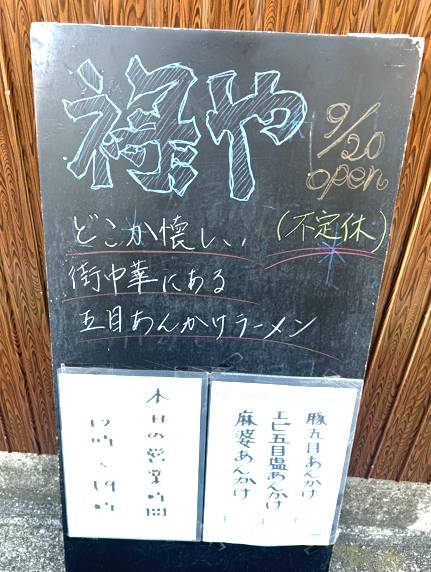 禄や
9/20
open
どこか懐しい
(不定休)
街中華にある
五目あんかけラーメン
豚五目あんかけ
エビ五目塩あんかけ
麻婆あんかけ
本日の営業時間
12時～19時